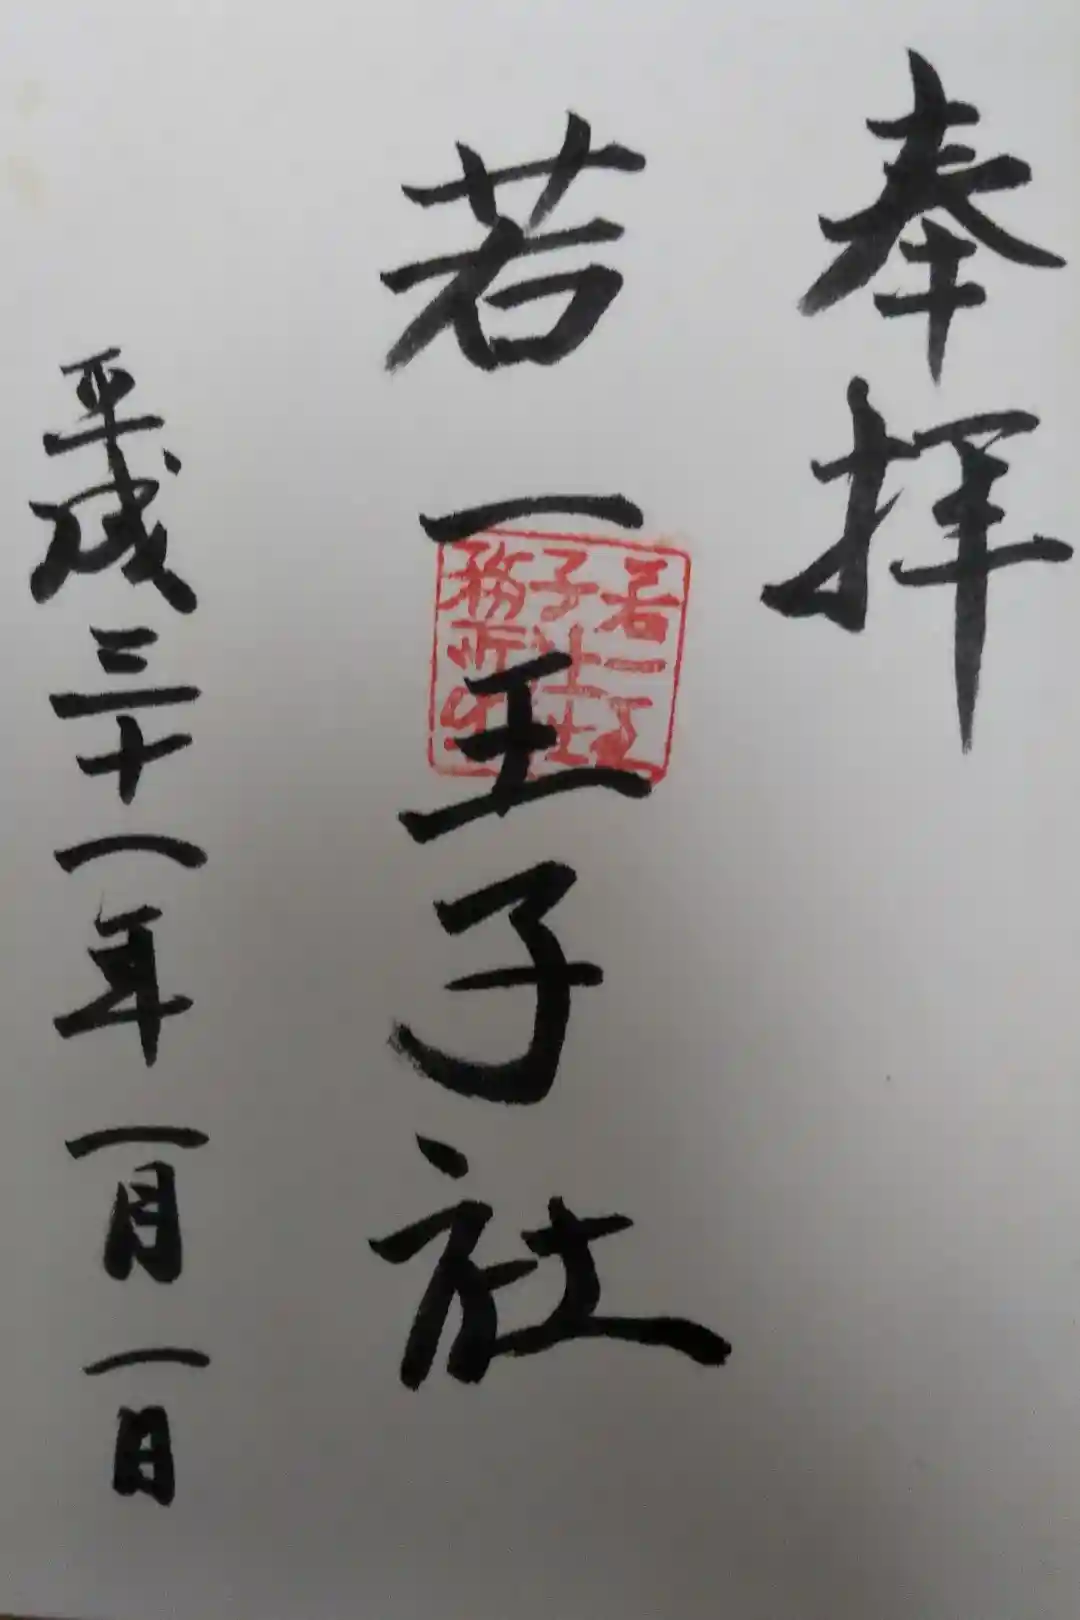 奉拝
若一王子社
若一王
子社社
務所印
平成三十一年一月一日